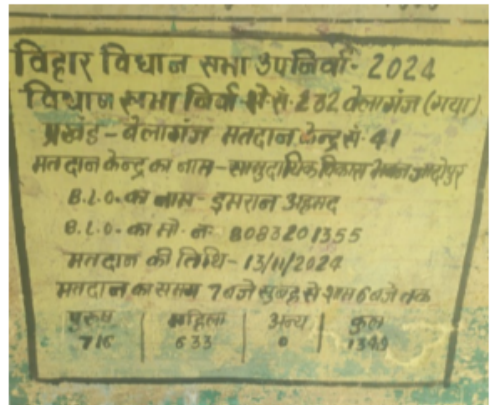 बिहार विधान सभा उपनिर्वा- 2024
विधान सभा निर्वा क्षे सं. 232 वेलागंज (गया)
प्रखंड - वेलागंज मतदान केन्द्र सं. 41
मतदान केन्द्र का नाम - सामुदायिक विकास भवन
B.L.O. का नाम - इमरान अहमद
B.L.O. का मो. नं. 8083201355
मतदान की तिथि - 13/11/2024
मतदान का समय 7 बजे सुबह से शाम 6 बजे तक
पुरुष महिला अन्य कुल
716 633 0 1349